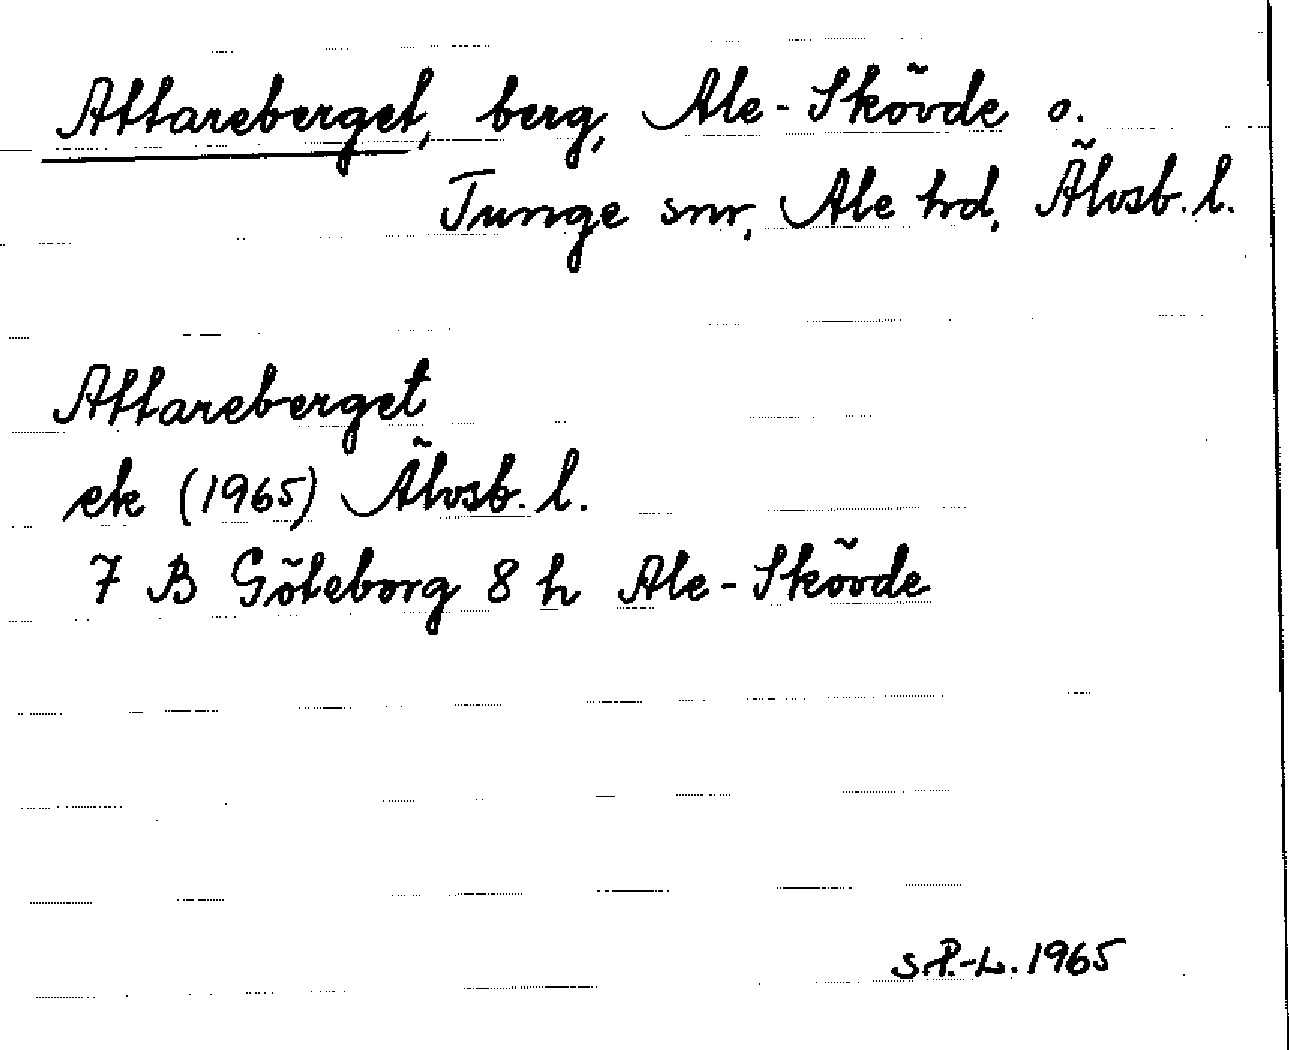 Attareberget, berg, Ale-Skövde o.
Tunge snr, Ale hrd, Älvsb. l.
Attareberget
ek (1965) Älvsb. l.
7 B Göteborg 8 h Ale-Skövde
S.P.-L. 1965